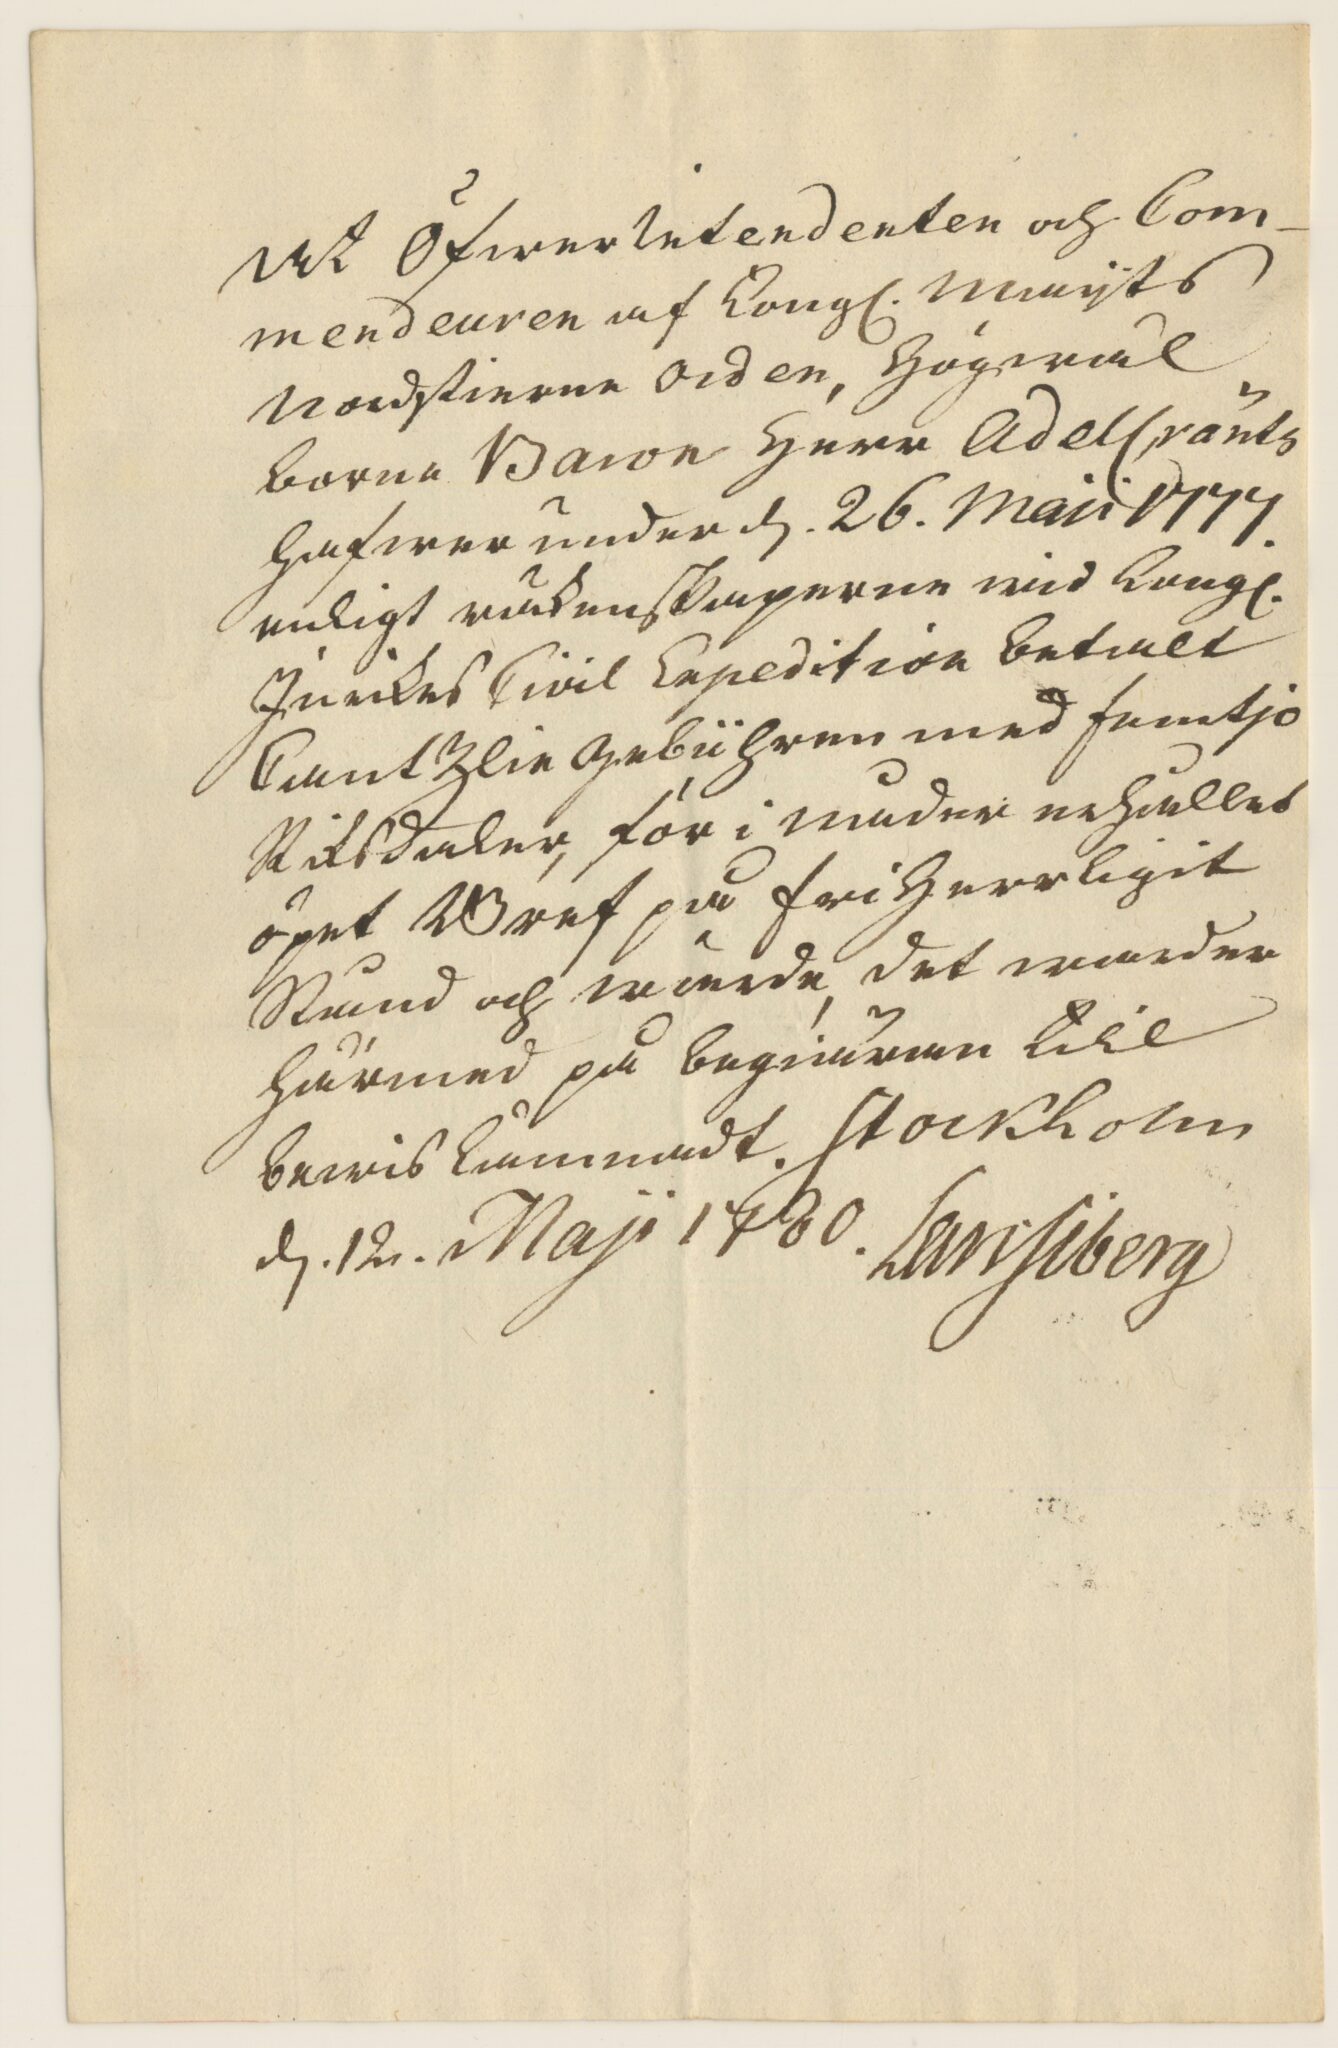 At Öfwerintendenten och Com-
mendeuren af Kongl. Maijts
Nordstierne Orden, Högwäl
borne Baron Herr Adelcrantz
hafwer under d. 26. Maji 1777.
enligt räkenskaperne wid Kongl.
Inrikes Civil Expedition betalt
Cantzlie Gebühren med femtjo
Riksdaler, för i nåder erhållet
öpet Bref på friherrligit
Stånd och wärde, det warder
härmed på begiäran till
bewis lämnadt. Stockholm
d. 12. Maji 1780.